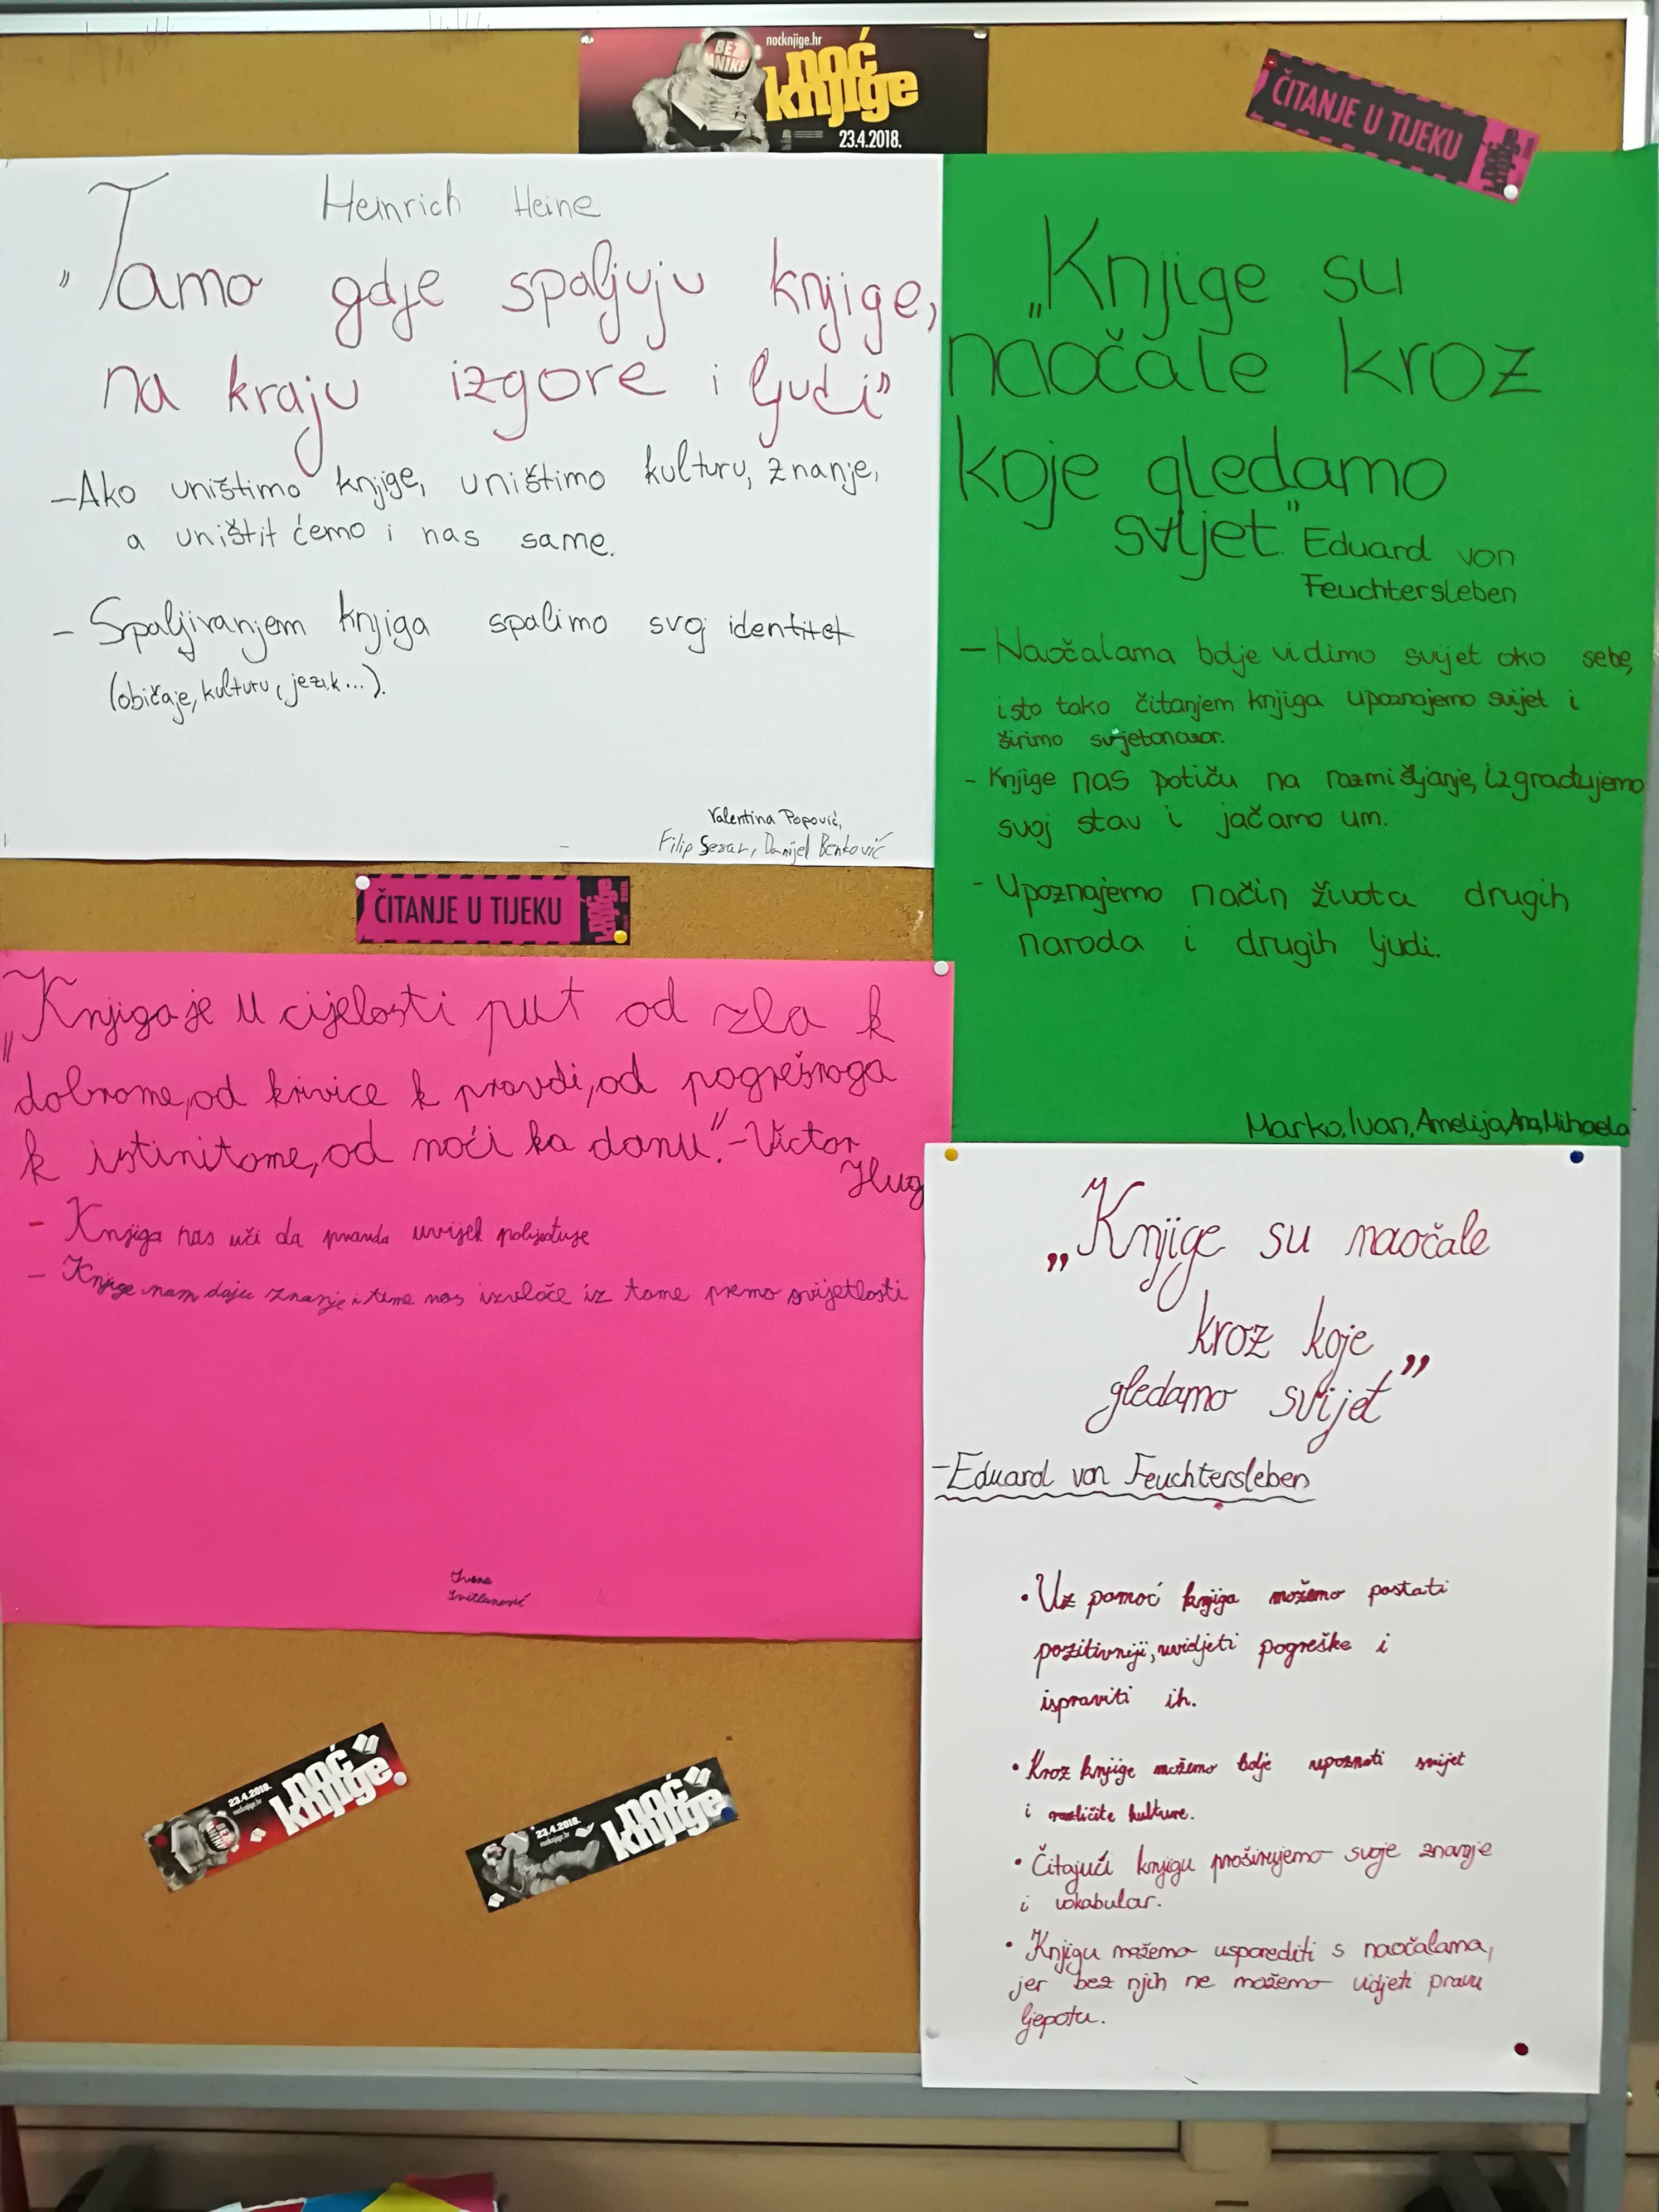 nocknjige.hr
BEZ
PANIKE!
noć
knjige
23.4.2018.
ČITANJE U TIJEKU
noć
knjige
Heinrich Heine
"Tamo gdje spaljuju knjige,
na kraju izgore i ljudi"
-Ako uništimo knjige, uništimo kulturu, znanje,
a uništit ćemo i nas same.
- Spaljivanjem knjiga spalimo svoj identitet
(običaje, kulturu, jezik...).
Valentina Popović,
Filip Sesar, Danijel Bentović
„Knjige su
naočale kroz
koje gledamo
svijet." Eduard von
Feuchtersleben
- Naočalama bolje vidimo svijet oko sebe,
isto tako čitanjem knjiga upoznajemo svijet i
širimo svjetonazor.
- Knjige nas potiču na razmišljanje, izgrađujemo
svoj stav i jačamo um.
- Upoznajemo način života drugih
naroda i drugih ljudi.
Marko, Ivan, Amelija, Ana, Mihaela
ČITANJE U TIJEKU
noć
knjige
„Knjiga je u cijelosti put od zla k
dobrome, od krivice k pravdi, od pogrešnoga
k istinitome, od noći ka danu." -Victor
Hug
- Knjiga nas uči da pravda uvijek pobjeđuje
- Knjige nam daju znanje i time nas izvlače iz tame prema svijetlosti
Ivana
„Knjige su naočale
kroz koje
gledamo svijet”
-Eduard von Feuchtersleben
• Uz pomoć knjiga možemo postati
pozitivniji, uvidjeti pogreške i
ispraviti ih.
• Kroz knjige možemo bolje upoznati svijet
i različite kulture.
• Čitajući knjigu proširujemo svoje znanje
i vokabular.
• Knjigu možemo usporediti s naočalama,
jer bez njih ne možemo vidjeti pravu
ljepotu.
23.4.2018.
nocknjige.hr
BEZ
PANIKE!
noć
knjige
23.4.2018.
nocknjige.hr
noć
knjige